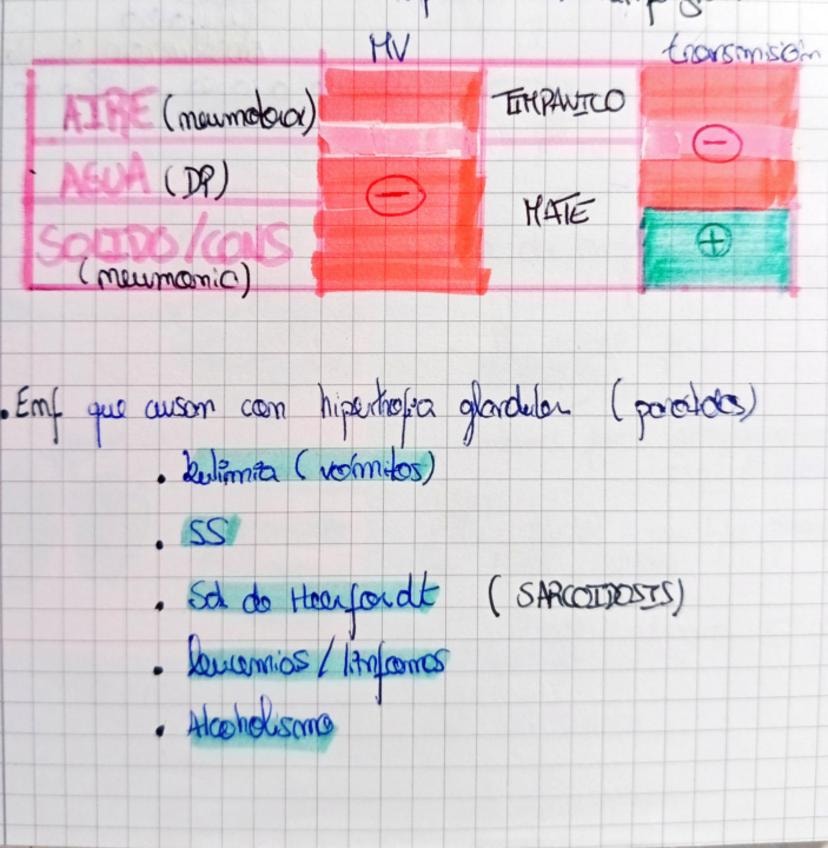 MV transmisión
AIRE (neumotórax) TIMPANICO
AGUA (DP) MATE
SOLIDO/CONS
(neumonia)
. Enf que cursan con hipertrofia glandular (parótidas)
. bulimia (vómitos)
. SS
. Sd de Heerfordt (SARCOIDOSIS)
. leucemias / linfomas
. Alcoholismo